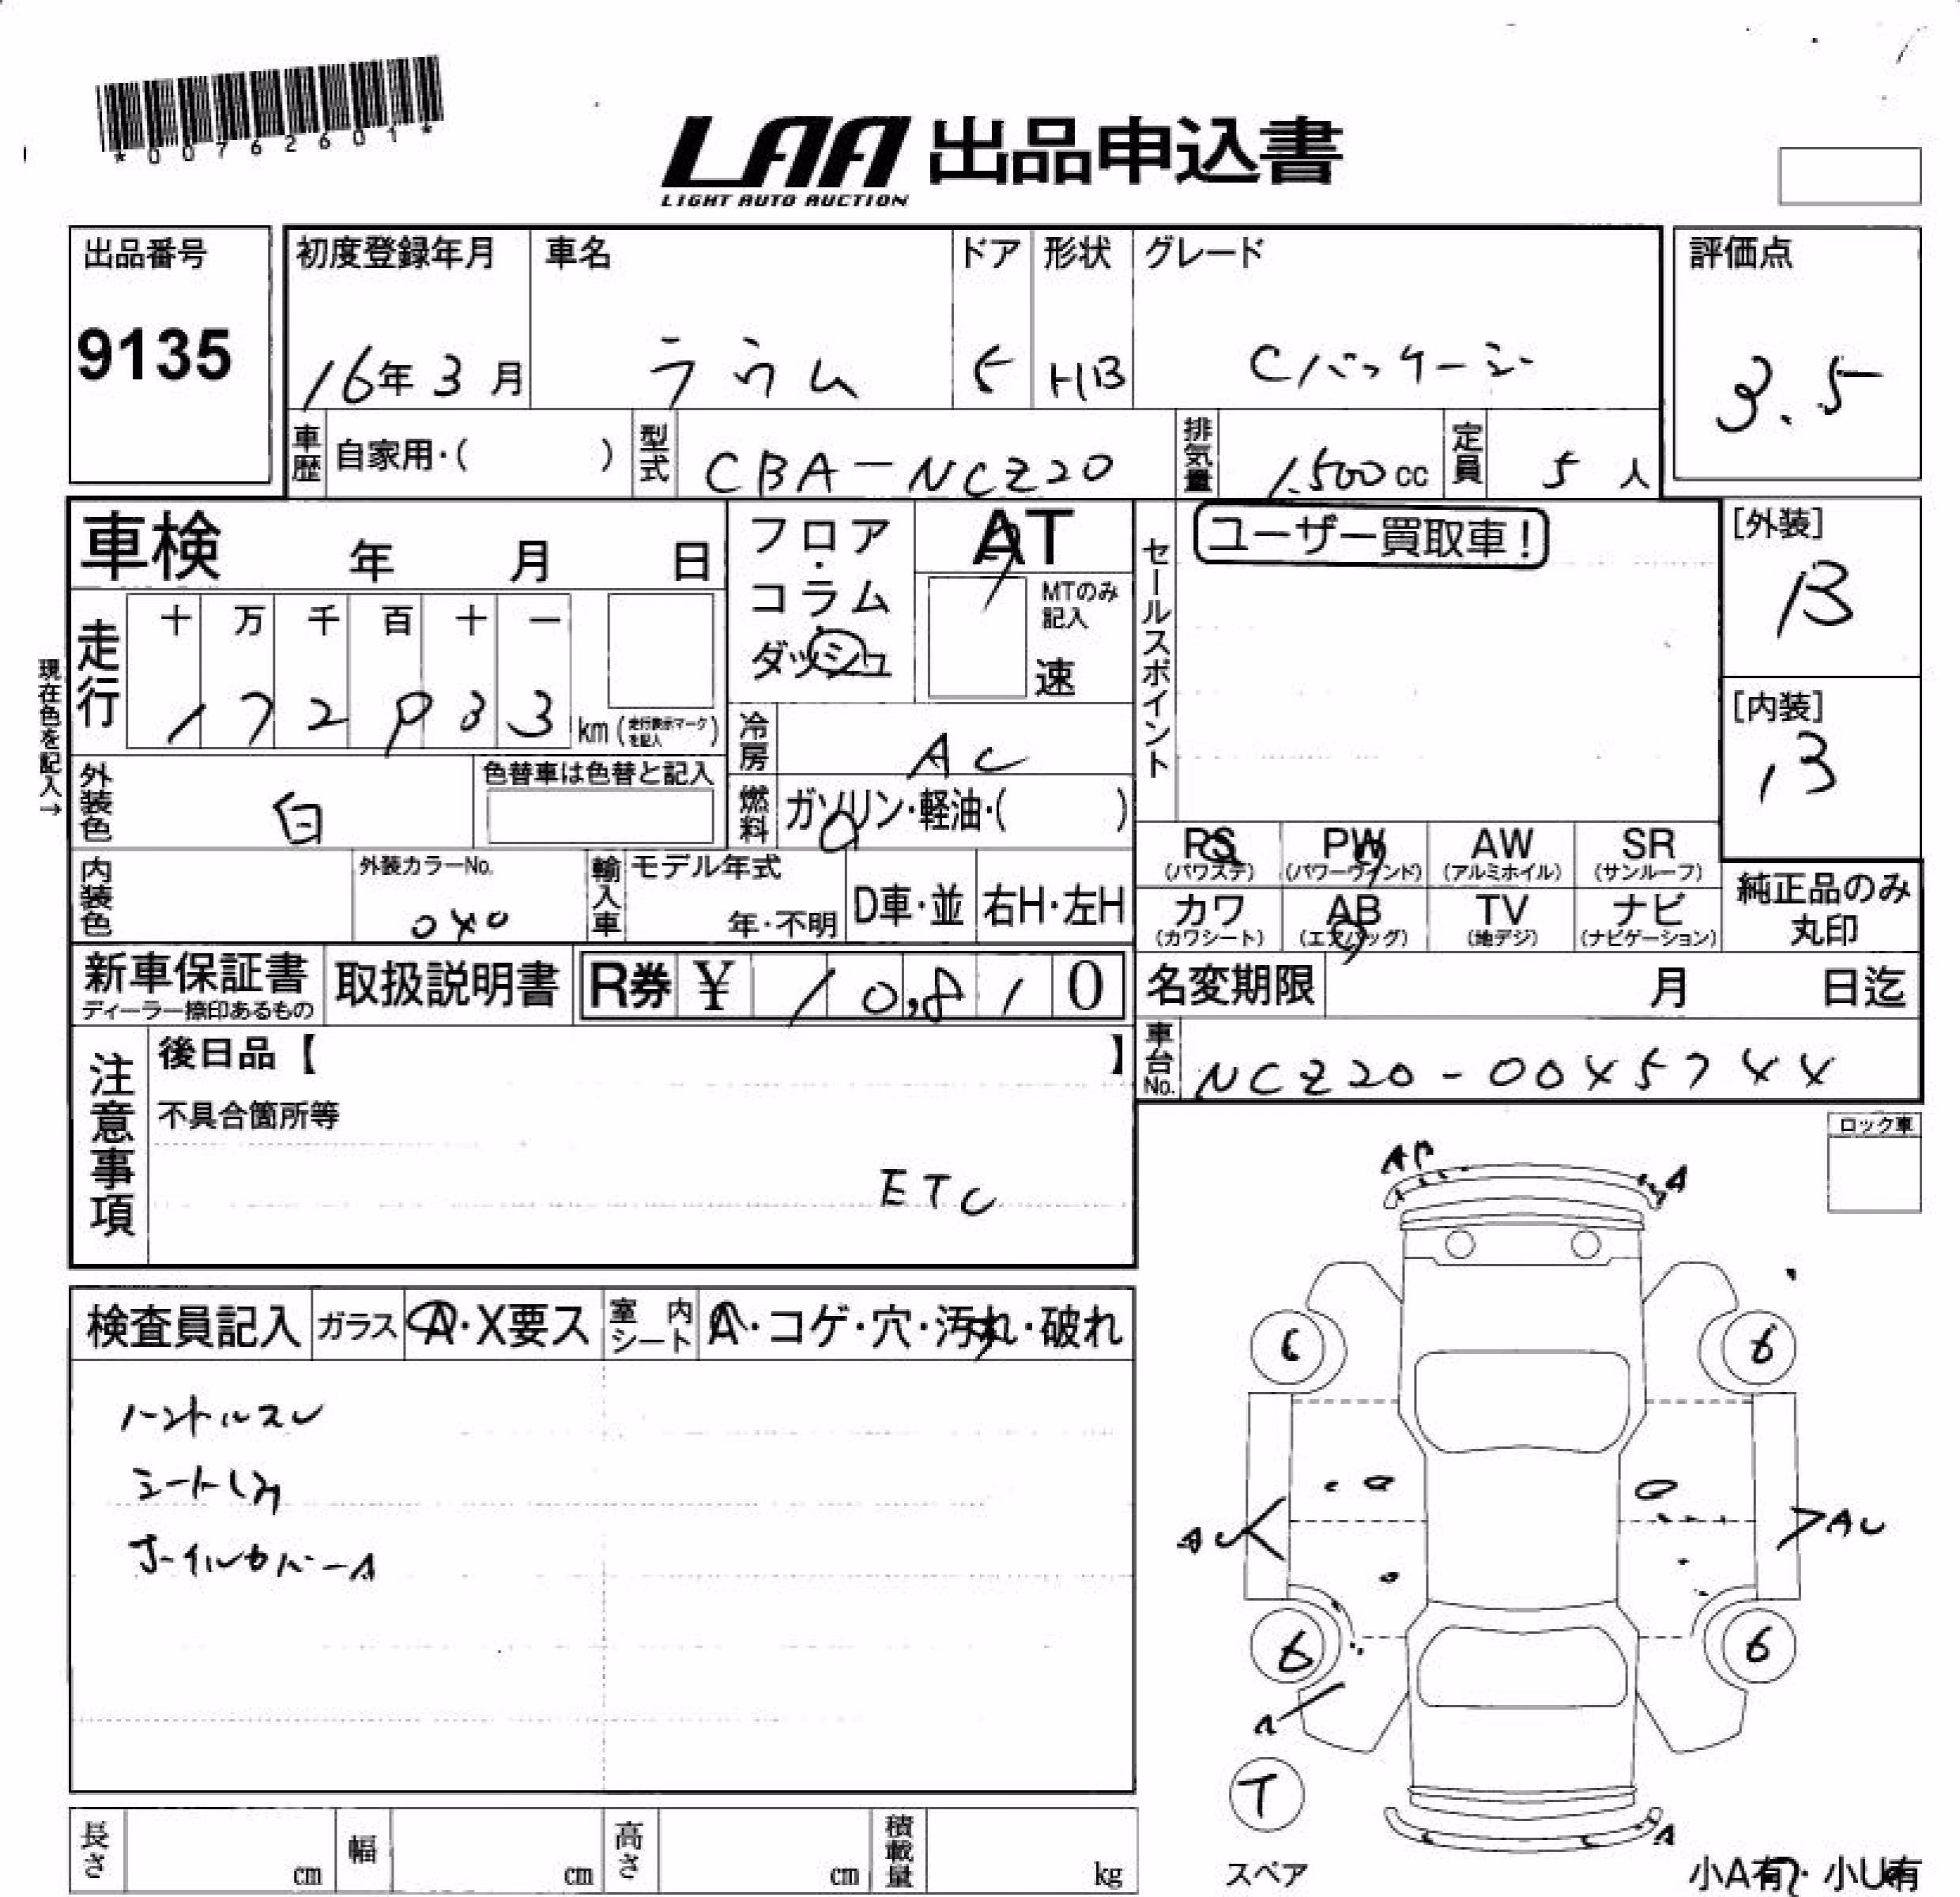 *00762601*
LAA 出品申込書
LIGHT AUTO AUCTION
出品番号
9135
初度登録年月
16年 3月
車名
ラウム
ドア
5
形状
HB
グレード
Cパッケージ
評価点
3.5
車歴
自家用・( )
型式
CBA-NCZ20
排気量
1,500cc
定員
5 人
車検 年 月 日
フロア・コラム・ダッシュ
AT
MTのみ記入
速
セールスポイント
ユーザー買取車!
[外装]
B
[内装]
B
現在色を記入→
走行
十 万 千 百 十 一
km (走行表示マークを記入)
冷房
AC
外装色
白
色替車は色替と記入
燃料
ガソリン・軽油・( )
内装色
外装カラーNo.
040
輸入車
モデル年式
年・不明
D車・並
右H・左H
PS
(パワステ)
PW
(パワーウィンド)
AW
(アルミホイル)
SR
(サンルーフ)
カワ
(カワシート)
AB
(エアバッグ)
TV
(地デジ)
ナビ
(ナビゲーション)
純正品のみ
丸印
新車保証書
ディーラー捺印あるもの
取扱説明書
R券 ¥ 10,810
名変期限 月 日迄
車台No.
NCZ20-0045744
注意事項
後日品【 】
不具合箇所等
ETC
ロック車
検査員記入
ガラス
A・X要ス
室内シート
A・コゲ・穴・汚れ・破れ
ハンドルスレ
シートシミ
ホイルカバーA
AP
A
6
6
AU
AU
6
6
A
T
スペア
A
小A有・小U有
長さ cm
幅 cm
高さ cm
積載量 kg